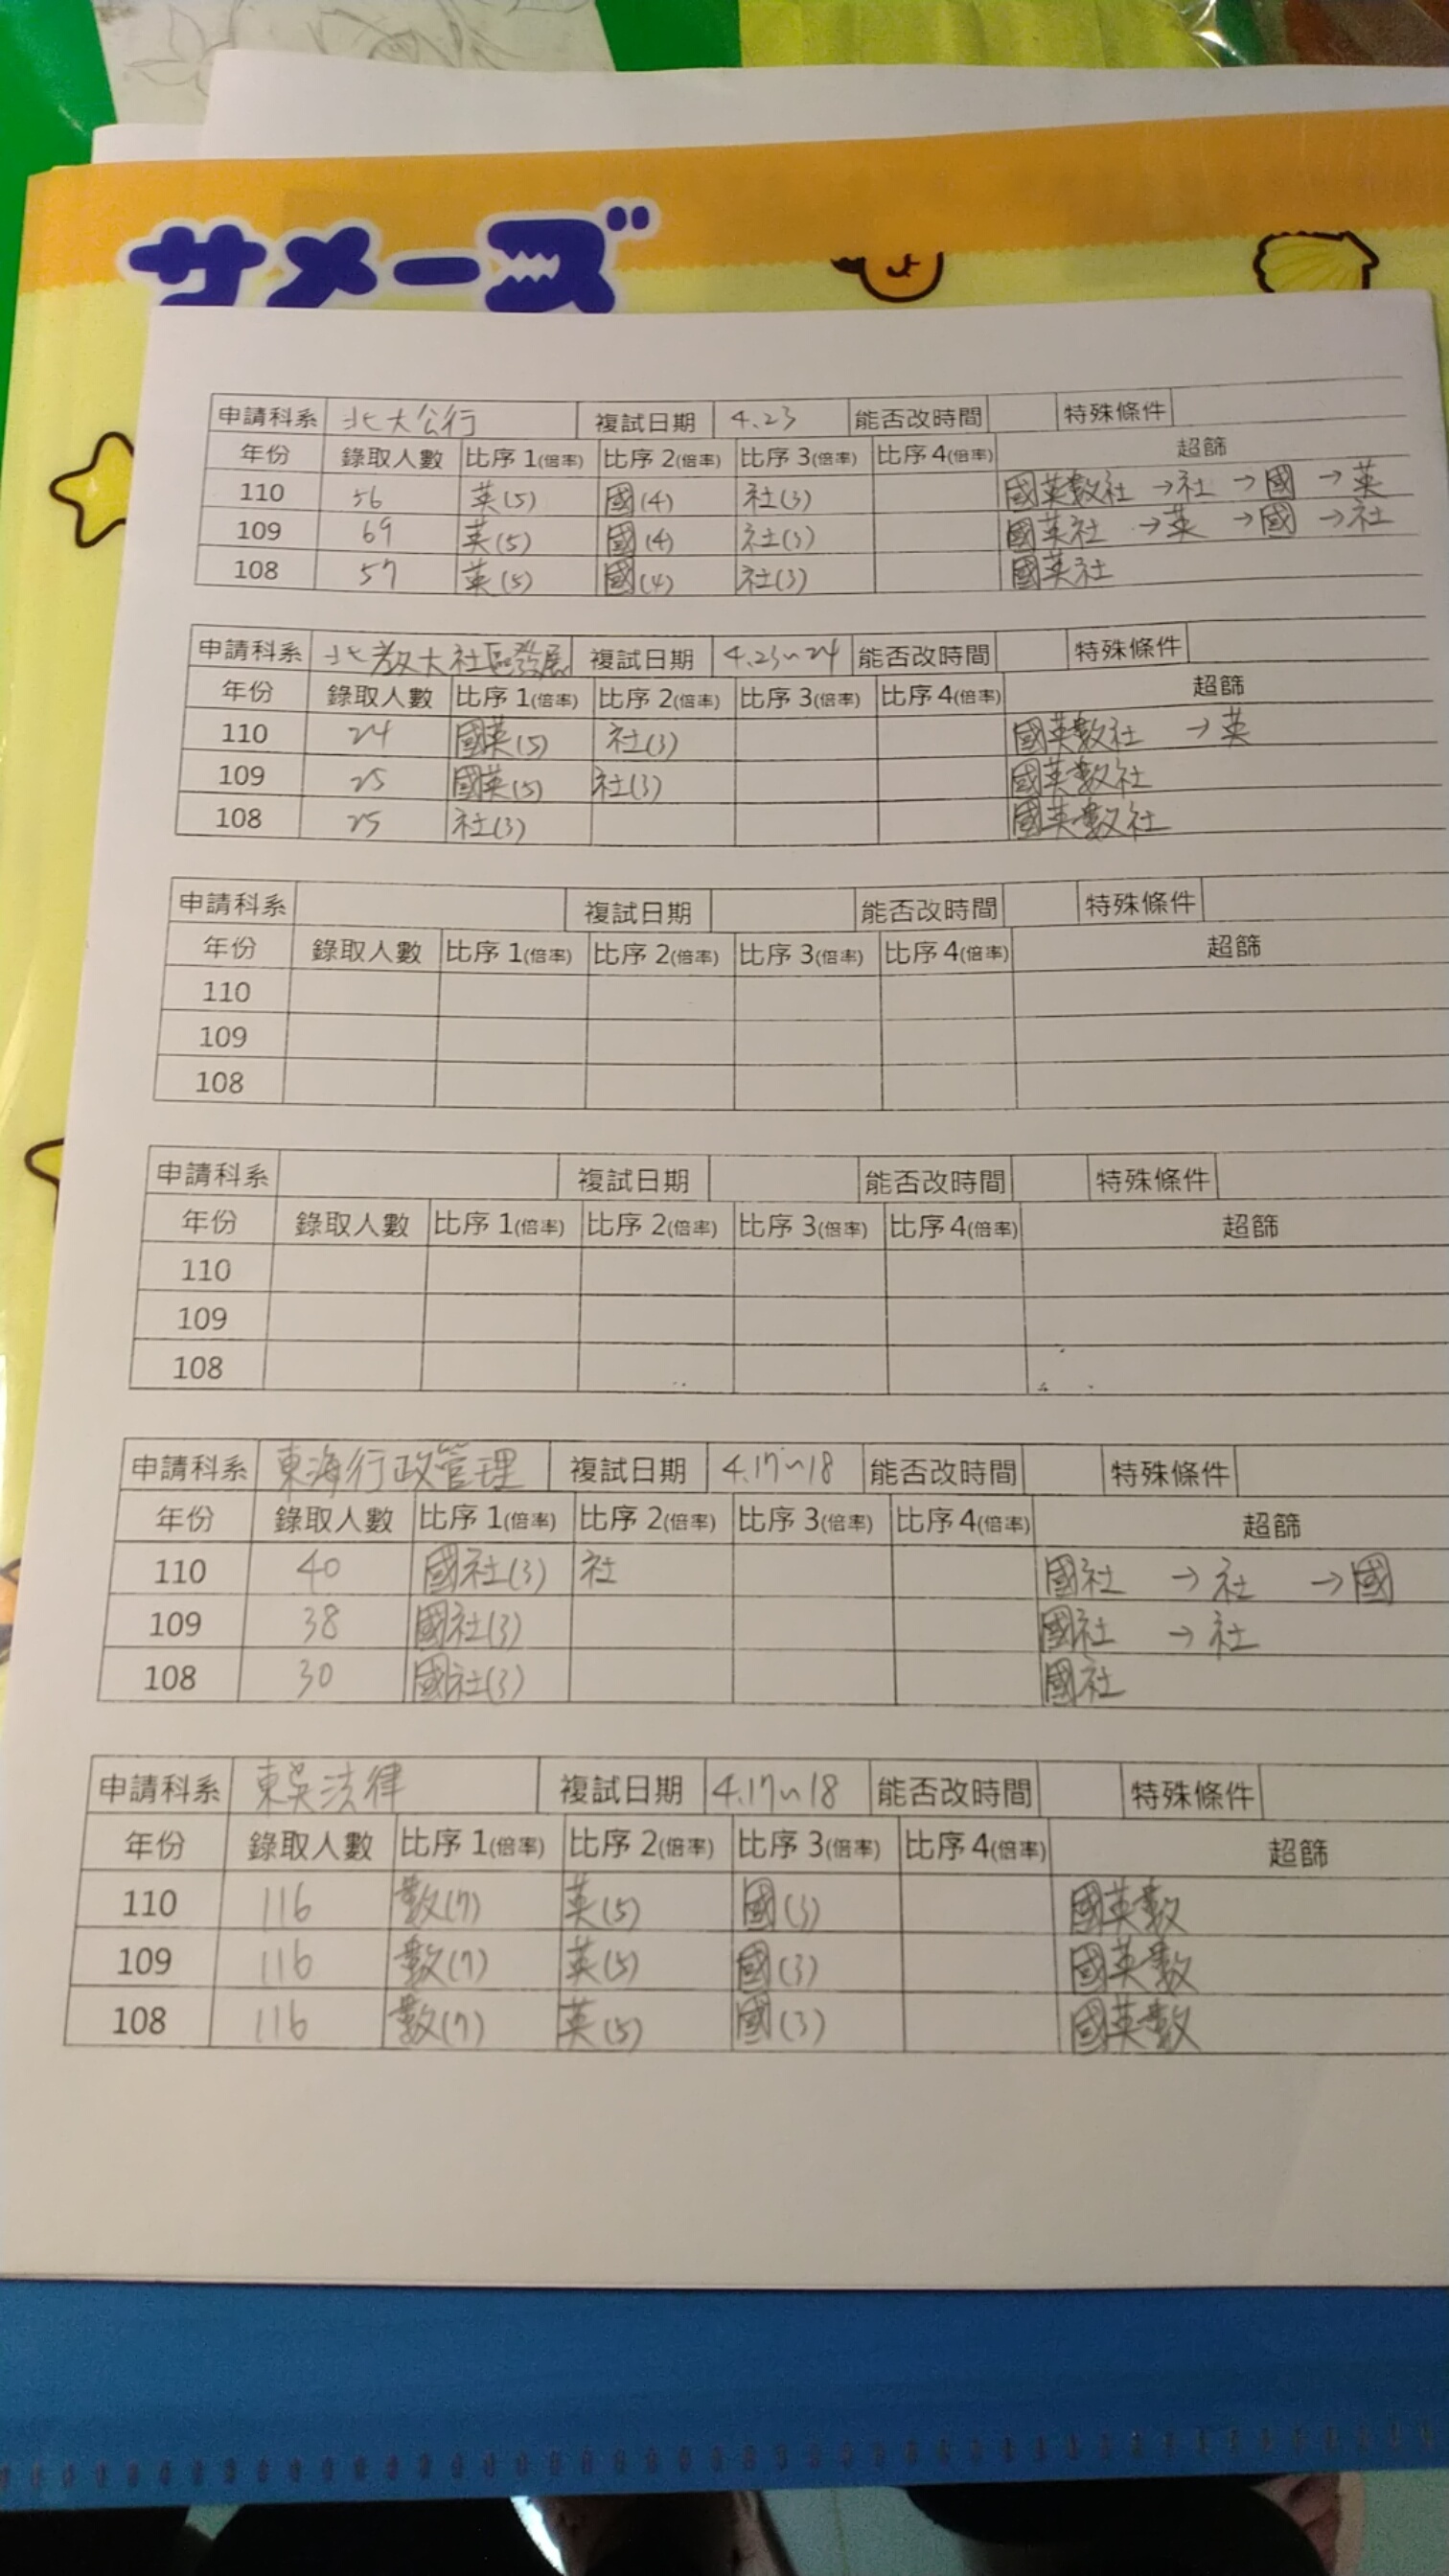 サメーズ
申請科系 北大公行 複試日期 4.23 能否改時間 特殊條件
年份 錄取人數 比序1(倍率) 比序2(倍率) 比序3(倍率) 比序4(倍率) 超篩
110 56 英(5) 國(4) 社(3) 國英數社 →社 →國 →英
109 69 英(5) 國(4) 社(3) 國英社 →英 →國 →社
108 57 英(5) 國(4) 社(3) 國英社
申請科系 北教大社區發展 複試日期 4.23~24 能否改時間 特殊條件
年份 錄取人數 比序1(倍率) 比序2(倍率) 比序3(倍率) 比序4(倍率) 超篩
110 24 國英(5) 社(3) 國英數社 →英
109 25 國英(5) 社(3) 國英數社
108 25 社(3) 國英數社
申請科系 複試日期 能否改時間 特殊條件
年份 錄取人數 比序1(倍率) 比序2(倍率) 比序3(倍率) 比序4(倍率) 超篩
110
109
108
申請科系 複試日期 能否改時間 特殊條件
年份 錄取人數 比序1(倍率) 比序2(倍率) 比序3(倍率) 比序4(倍率) 超篩
110
109
108
申請科系 東海行政管理 複試日期 4.17~18 能否改時間 特殊條件
年份 錄取人數 比序1(倍率) 比序2(倍率) 比序3(倍率) 比序4(倍率) 超篩
110 40 國社(3) 社 國社 →社 →國
109 38 國社(3) 國社 →社
108 30 國社(3) 國社
申請科系 東吳法律 複試日期 4.17~18 能否改時間 特殊條件
年份 錄取人數 比序1(倍率) 比序2(倍率) 比序3(倍率) 比序4(倍率) 超篩
110 116 數(7) 英(5) 國(3) 國英數
109 116 數(7) 英(5) 國(3) 國英數
108 116 數(7) 英(5) 國(3) 國英數